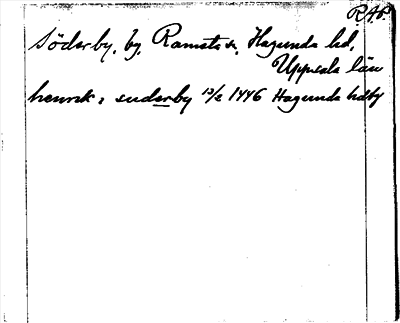 RAP
Söderby, by, Ramsta sn, Hagunda hd,
Uppsala län
henrik i suderby 13/2 1446 Hagunda hdby